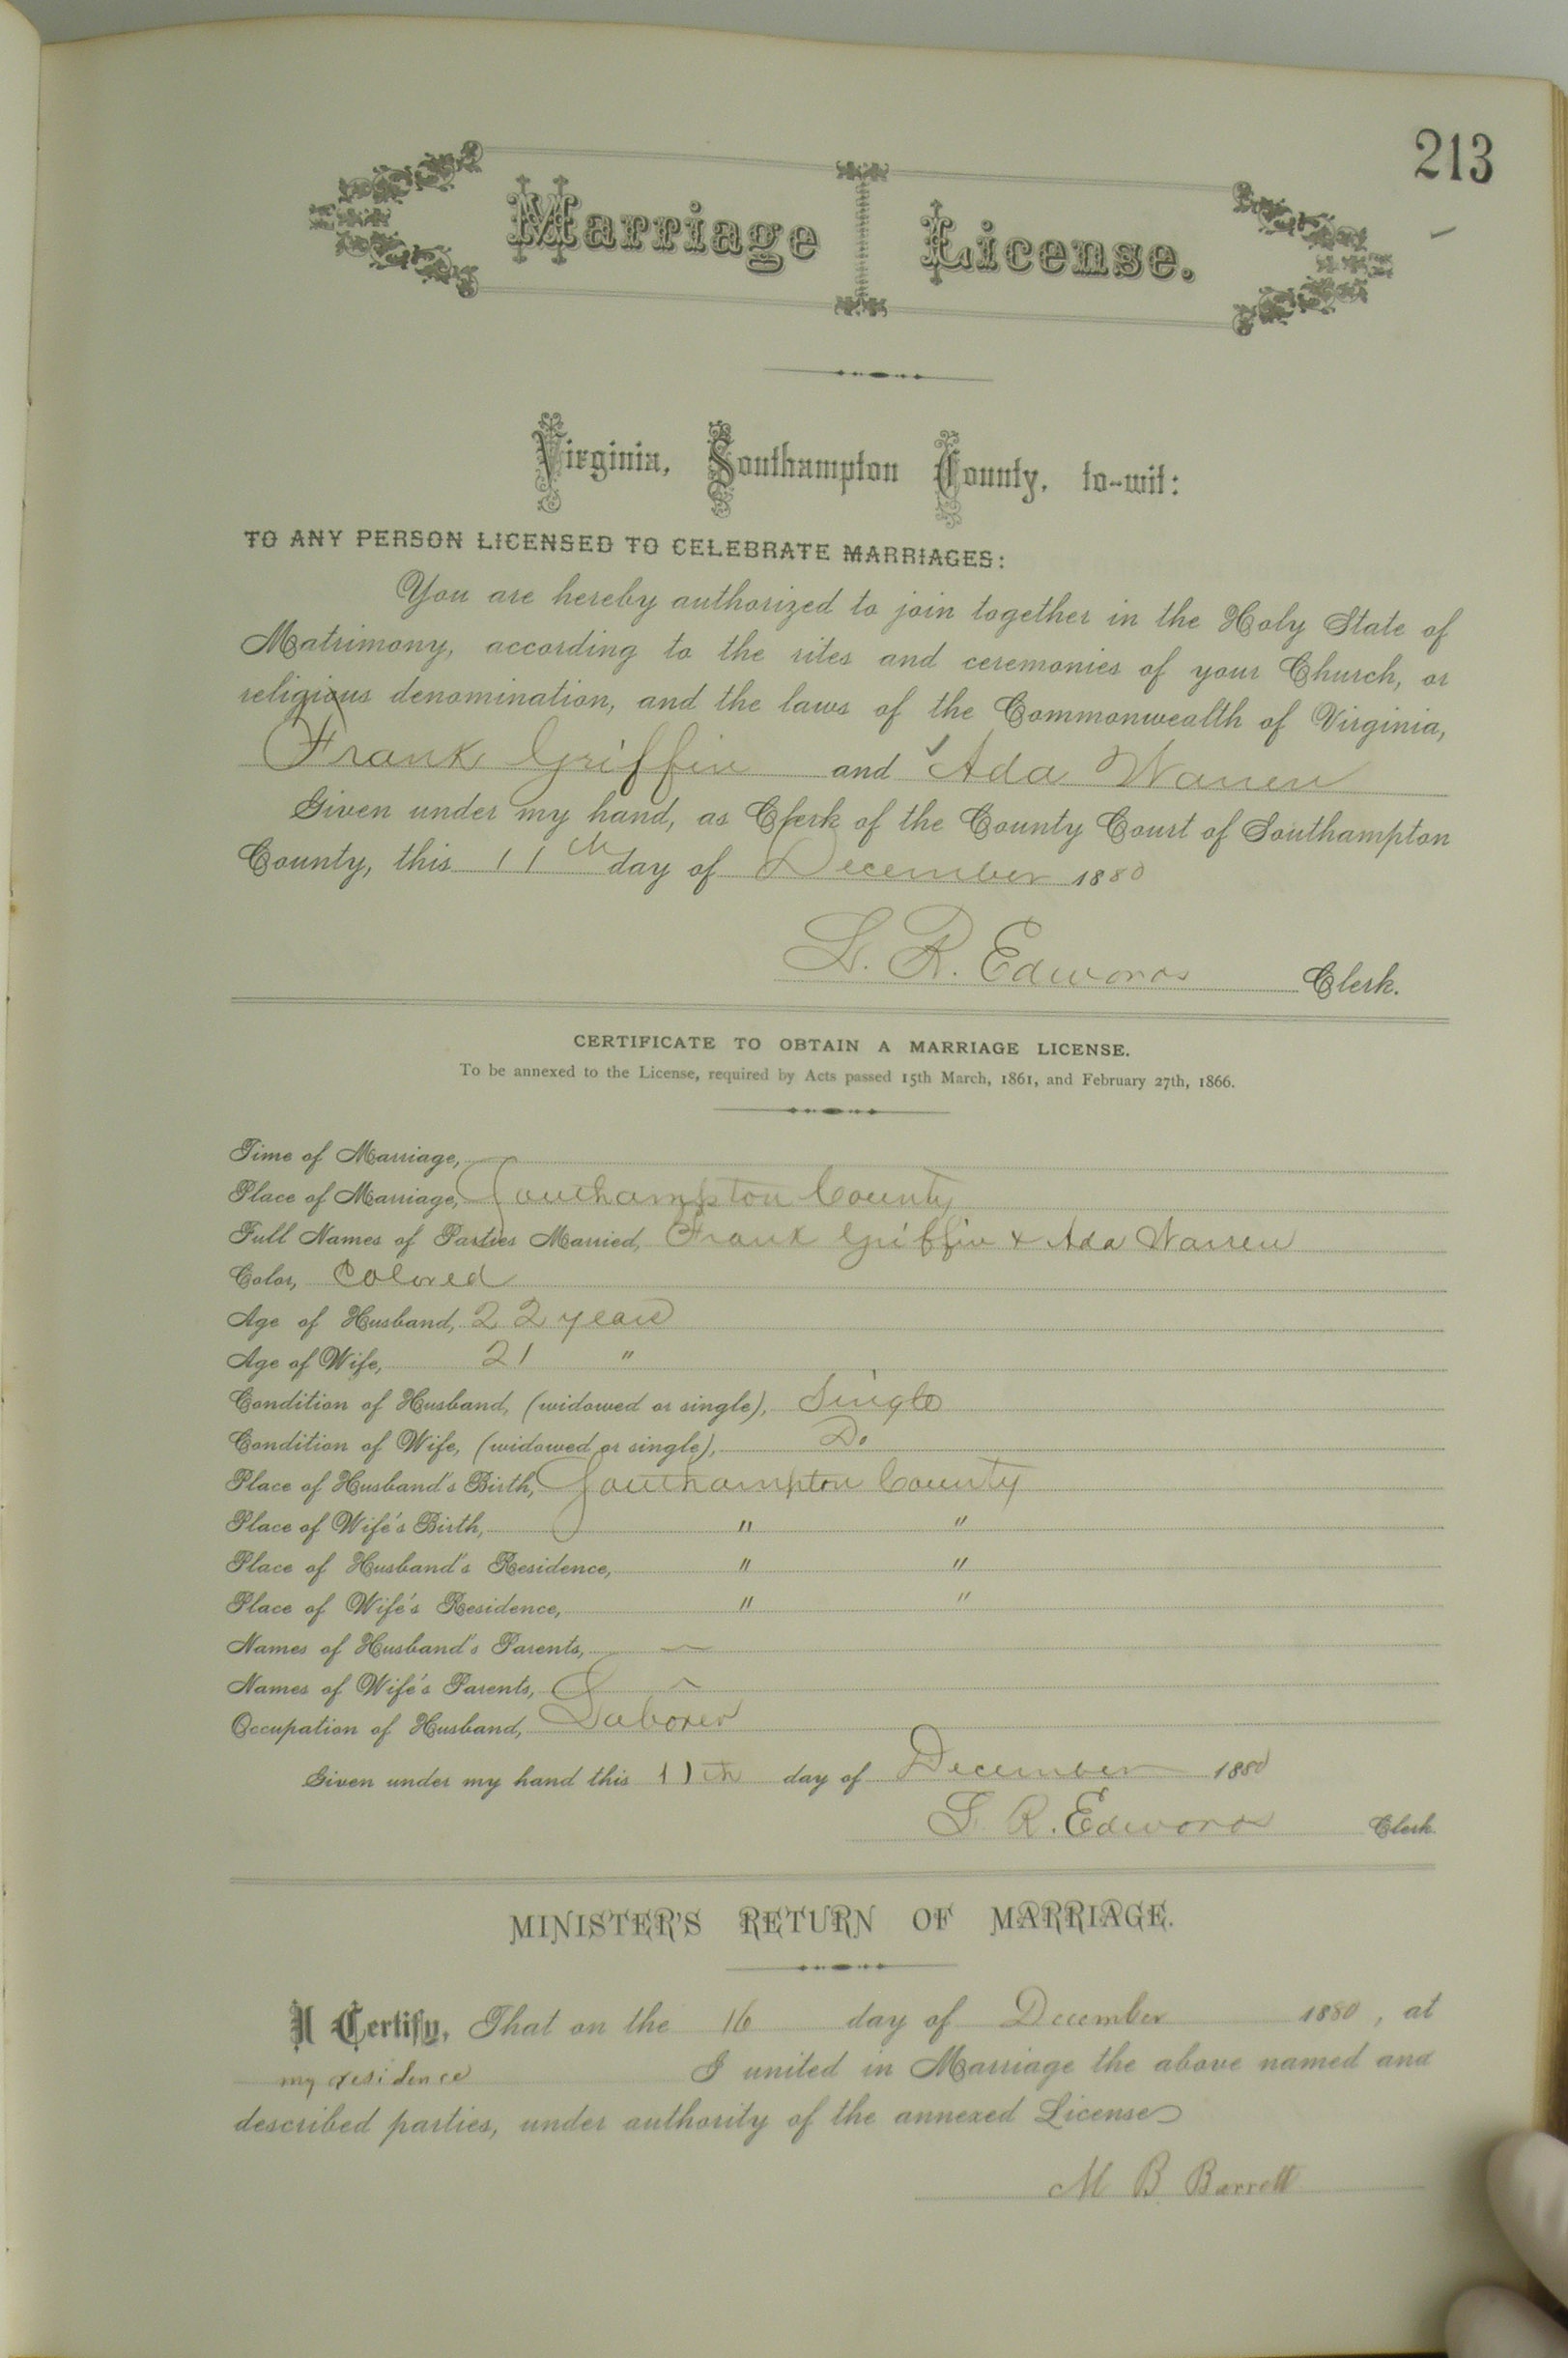 213
Marriage License.
Virginia, Southampton County, to-wit:
TO ANY PERSON LICENSED TO CELEBRATE MARRIAGES:
You are hereby authorized to join together in the Holy State of
Matrimony, according to the rites and ceremonies of your Church, or
religious denomination, and the laws of the Commonwealth of Virginia,
Frank Griffin and Ada Warren
Given under my hand, as Clerk of the County Court of Southampton
County, this 11th day of December 1880
L. R. Edwards Clerk.
CERTIFICATE TO OBTAIN A MARRIAGE LICENSE.
To be annexed to the License, required by Acts passed 15th March, 1861, and February 27th, 1866.
Time of Marriage,
Place of Marriage, Southampton County
Full Names of Parties Married, Frank Griffin & Ada Warren
Color, Colored
Age of Husband, 22 years
Age of Wife, 21 "
Condition of Husband, (widowed or single), Single
Condition of Wife, (widowed or single), Do
Place of Husband's Birth, Southampton County
Place of Wife's Birth, " "
Place of Husband's Residence, " "
Place of Wife's Residence, " "
Names of Husband's Parents, —
Names of Wife's Parents, —
Occupation of Husband, Laborer
Given under my hand this 11th day of December 1880
L. R. Edwards Clerk
MINISTER'S RETURN OF MARRIAGE.
I Certify, That on the 16 day of December 1880, at
my residence I united in Marriage the above named and
described parties, under authority of the annexed License
M B Barrett